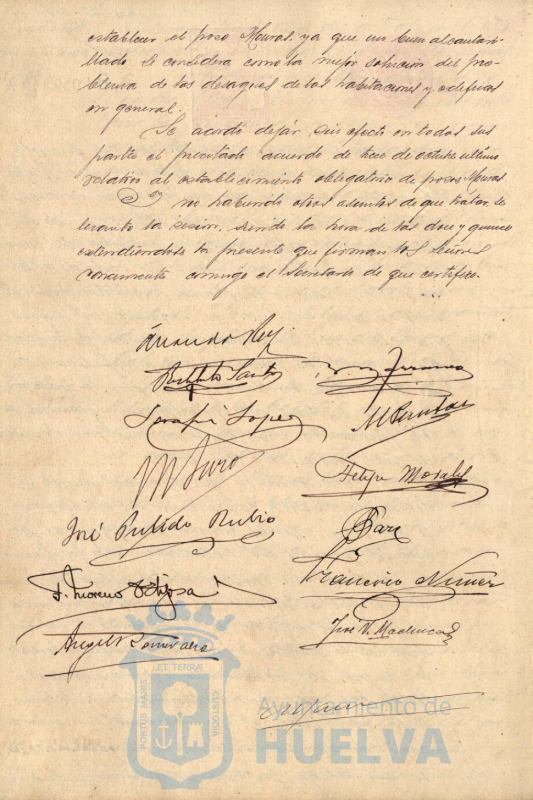 establecer el pozo Mouras ya que un buen alcantari-
llado se considera como la mejor solución del pro-
blema de los desagües de las habitaciones y edificios
en general.
Se acordó dejar sin efecto en todas sus
partes el precitado acuerdo de trece de octubre último
relativo al establecimiento obligatorio de pozos Mouras
Y no habiendo otros asuntos de que tratar, se
levantó la sesión, siendo la hora de las doce y quince
extendiéndose la presente que firman los Señores
conmigo el Secretario de que certifico.
Serafín López
Felipe Morales
José Pulido Rubio
Francisco Núñez
F. Moreno
Angel
José
ET TERRÆ
PORTUS MARIS
CUSTODIA
Ayuntamiento de
HUELVA